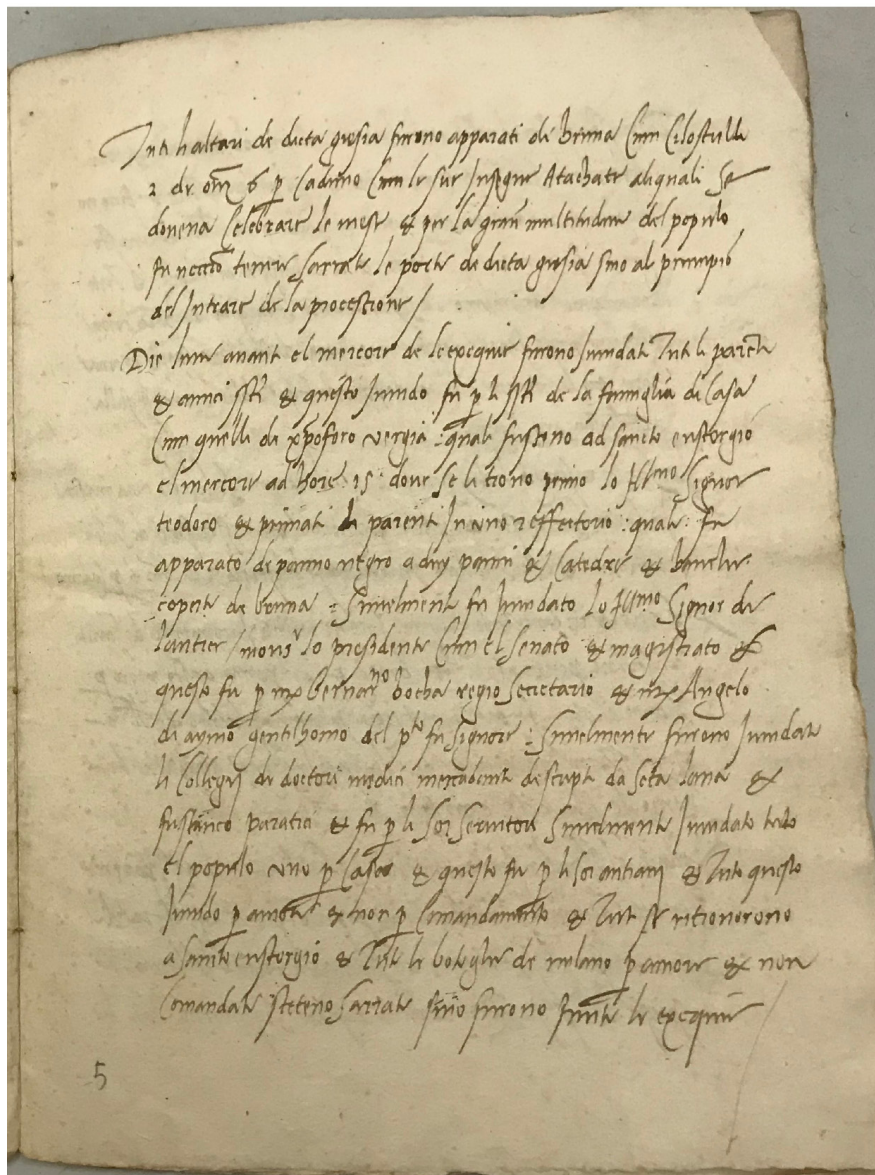 Tuti li altari de dicta giesia furono apparati di bruna Cum Cilostri
2 de onz 6 p Caduno Cum le sue Insegne Atachate aliquali se
doueua Celebrare le messe & per la gran multitudine del populo
fu necco tenere sarrate le porte de dicta giesia sino al principio
del Intrare de la processione /
Die lune auanti el mercore de le exequie furono Inuidati Tuti li parenti
& amici & questo Inuido fu p li de la famiglia di Casa
Cum quelli da xpoforo vergia : quali fusseno ad sancto eustorgio
el mercore ad hore : 15 : doue se li trouo primo lo Illmo Signor
teodoro & primati parenti In uno reffectorio : quale : fu
apparato de panno negro a duy panni & Catedre & banche
coperte de bruna : Similmente fu Inuidato lo Illmo Signor de
lautrec / monsr lo presidente Cum el senato & magistrato &
questo fu p mx Bernarno bocha regio secretario & mx Angelo
di aymo gentilhomo del pto fu signore : Similmente furono Inuidati
li Collegij de doctori medici mercadanti descripti da seta lana &
fustaneo paratici & fu p li soi seruitori Similmente Inuidato tuto
el populo uno p Casa & questo fu p li soi antiani & Tuto questo
Inuido p amore & non p Comandamento & Tuti se ritrouorono
a sancto eustorgio & Tute le boteghe de milano p amore & non
Comandate steteno sarrate sino furono finite le exequie /
5